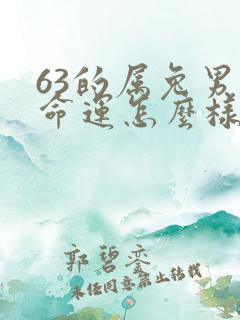 63的属兔男
命运怎麽样
郭碧銮
未经同意禁止转载